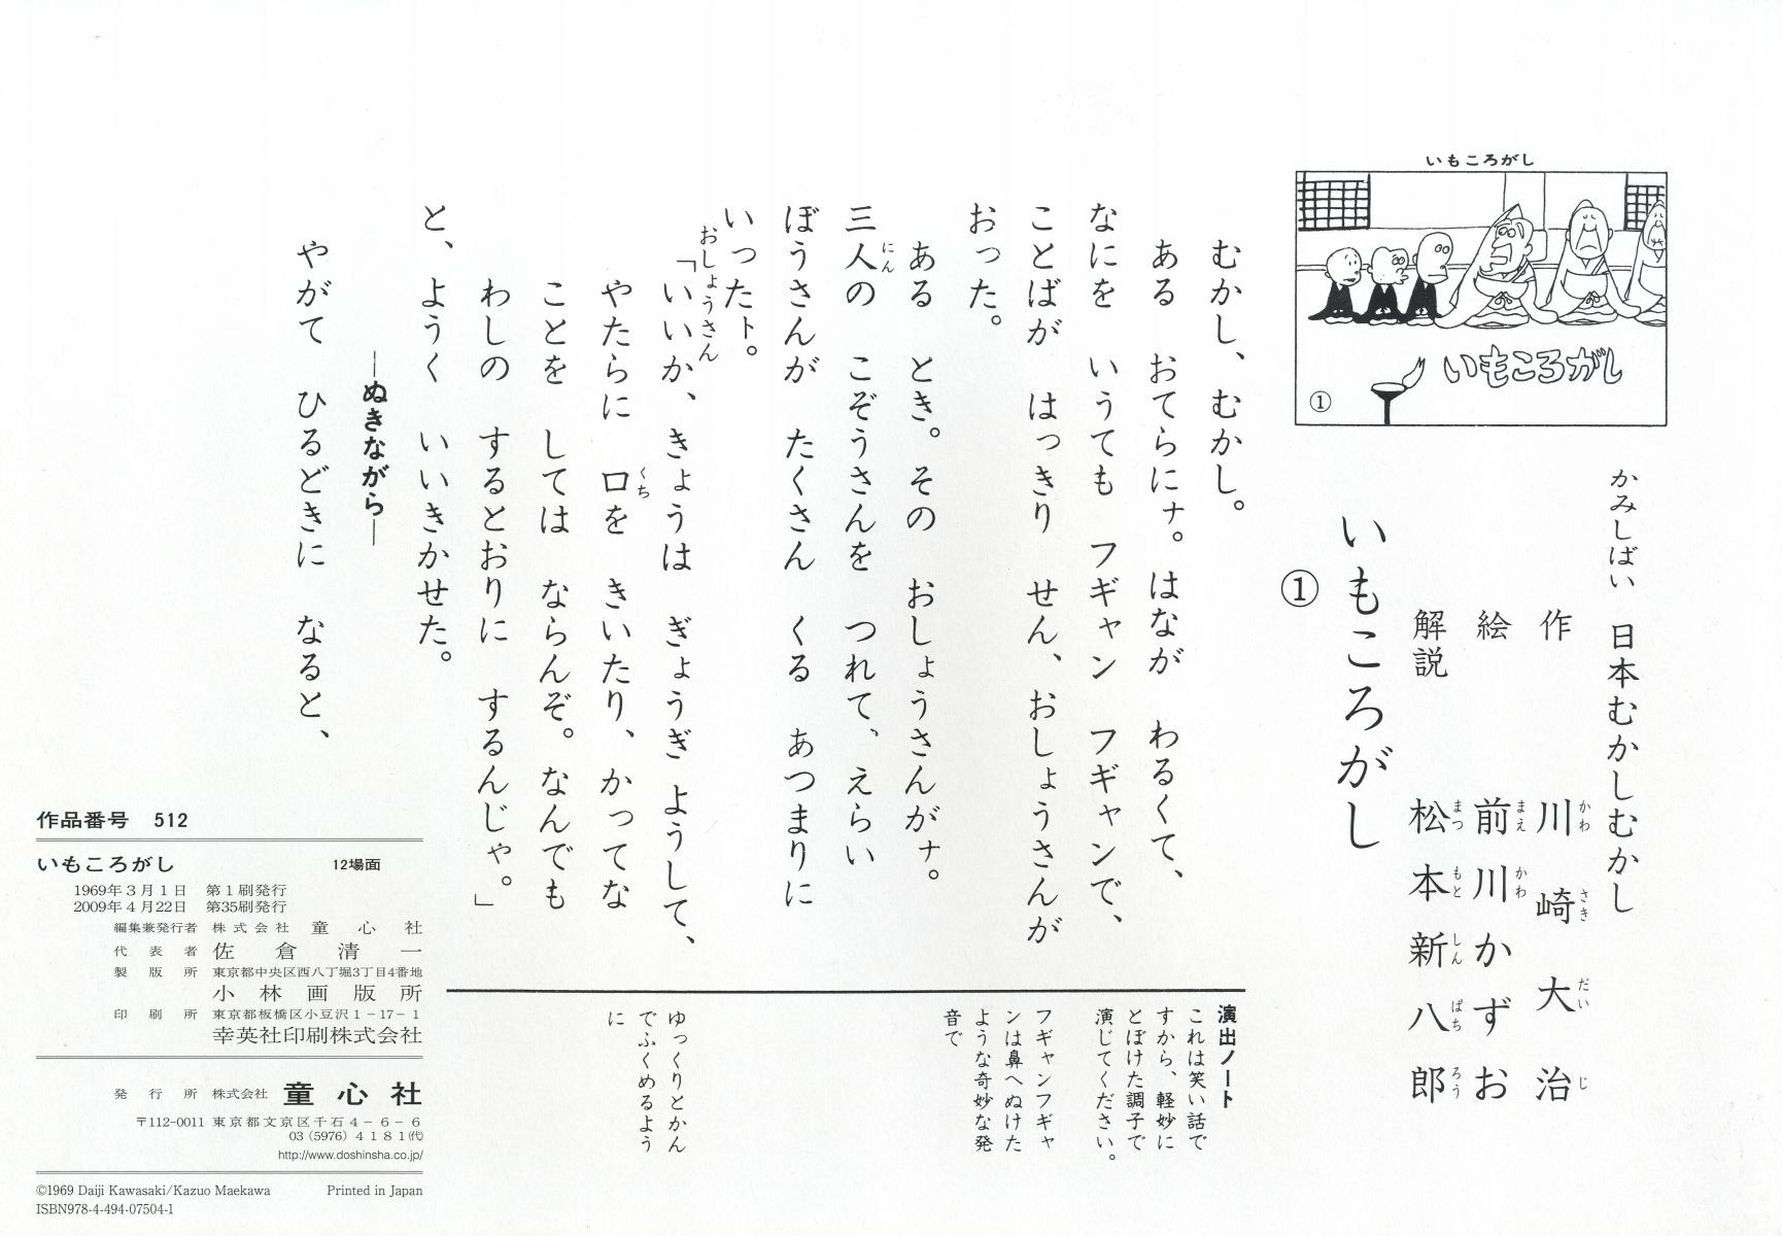 いもころがし
いもころがし
①
かみしばい 日本むかしむかし
作 川崎大治
かわさきだいじ
絵 前川かずお
まえかわ
解説 松本新八郎
まつもとしんぱちろう
いもころがし
①
むかし、むかし。
ある おてらにナ。はなが わるくて、
なにを いうても フギャン フギャンで、
ことばが はっきり せん、おしょうさんが
おった。
ある とき。その おしょうさんがナ。
三人の こぞうさんを つれて、えらい
にん
ぼうさんが たくさん くる あつまりに
いったト。
おしょうさん
「いいか、きょうは ぎょうぎ ようして、
やたらに 口を きいたり、かってな
くち
ことを しては ならんぞ。なんでも
わしの するとおりに するんじゃ。」
と、ようく いいきかせた。
―ぬきながら―
やがて ひるどきに なると、
演出ノート
これは笑い話で
すから、軽妙に
とぼけた調子で
演じてください。
フギャンフギャ
ンは鼻へぬけた
ような奇妙な発
音で
ゆっくりとかん
でふくめるよう
に
作品番号 512
いもころがし 12場面
1969年3月1日 第1刷発行
2009年4月22日 第35刷発行
編集兼発行者 株式会社 童心社
代表者 佐倉清一
製版所 東京都中央区西八丁堀3丁目4番地
小林画版所
印刷所 東京都板橋区小豆沢1-17-1
幸英社印刷株式会社
発行所 株式会社 童心社
〒112-0011 東京都文京区千石4-6-6
03(5976)4181(代)
http://www.doshinsha.co.jp/
©1969 Daiji Kawasaki/Kazuo Maekawa Printed in Japan
ISBN978-4-494-07504-1